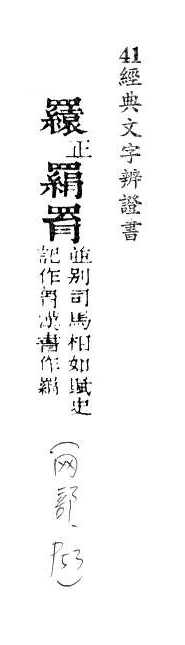 41經典文字辨證書
䍗正羂罥
並別司馬相如賦史
記作罥漢書作羂
(网部、P53)